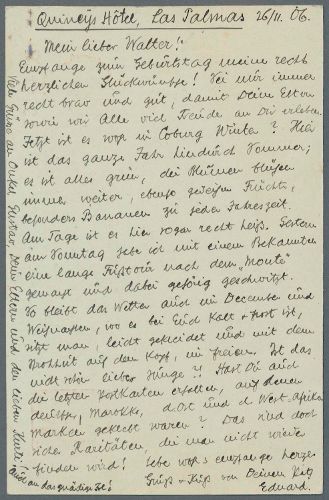 Quincey's Hôtel, Las Palmas 26/11. 06.
Mein lieber Walter!
Empfange zum Geburtstag meine recht
herzlichen Glückwünsche! Sei nur immer
recht brav und gut, damit Deine Eltern
sowie wir Alle viel Freude an Dir erleben.
Jetzt ist es wohl in Coburg Winter? Hier
ist das ganze Jahr hindurch Sommer;
es ist alles grün, die Blumen blühen
immer weiter, ebenso Früchte,
besonders Bananen zu jeder Jahreszeit.
Am Tage ist es hier sogar recht heiß. Gestern
am Sonntag habe ich mit einem Bekannten
eine lange Fußtour nach dem "Monte"
gemacht und dabei gehörig geschwitzt.
So bleibt das Wetter auch im December und
Weihnachten, wo es bei Euch kalt + Frost ist,
sitzt man, leicht gekleidet und mit dem
Strohhut auf dem Kopf, im Freien. Ist das
nicht schön lieber Junge? Hast Du auch
die letzten Postkarten erhalten, auf denen
deutsche, Marokko, d.Ost und d. West Afrika
Marken geklebt waren? Das sind doch
sicher Raritäten, die man nicht wieder
finden wird! Lebe wohl + empfange herzl.
Gruß + Kuß von Deinem
Eduard.
Viele Grüße an Onkel Gustav, Deine Eltern und den lieben